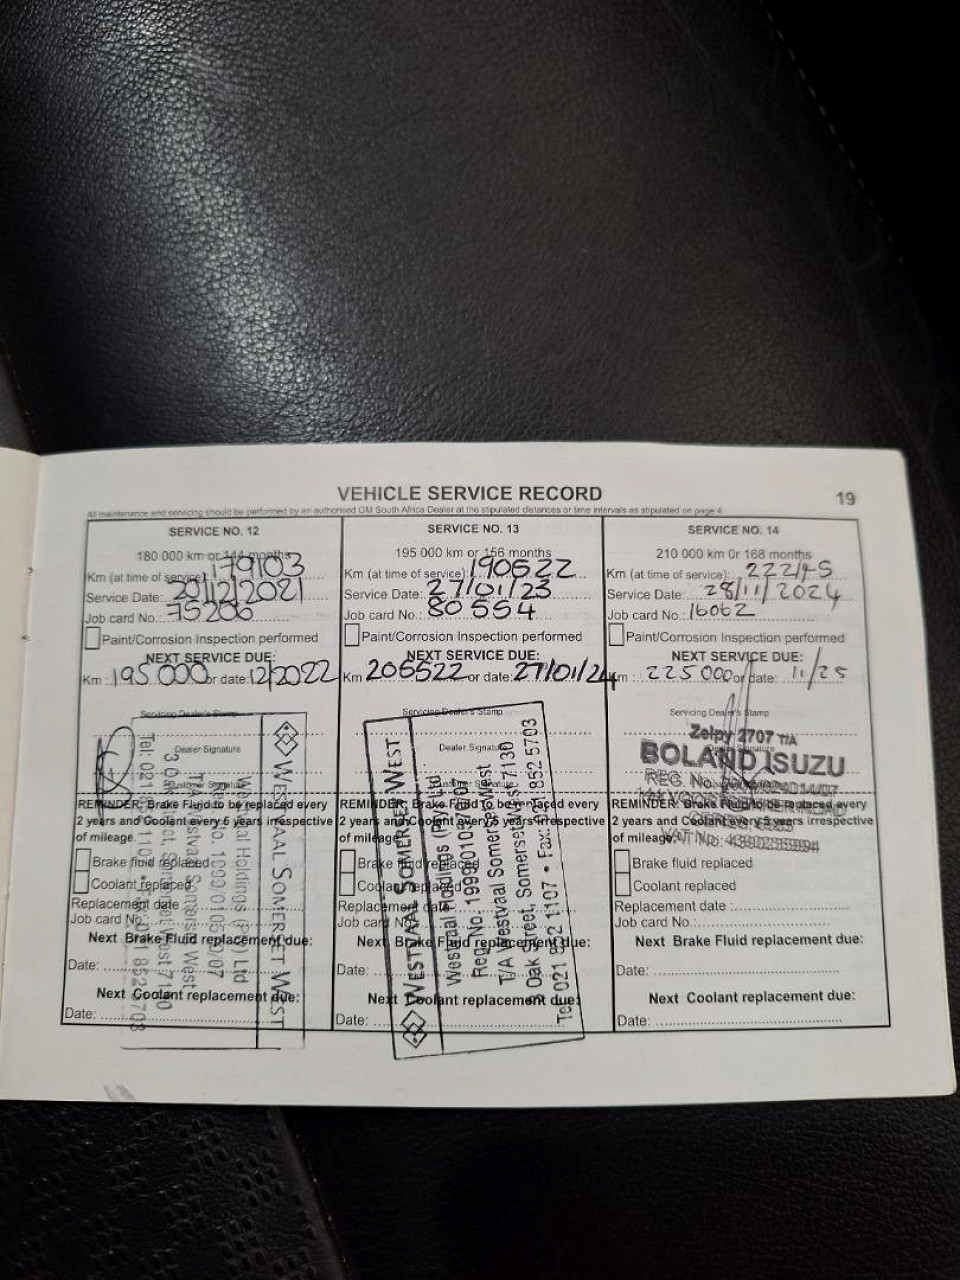 VEHICLE SERVICE RECORD
19
All maintenance and servicing should be performed by an authorised GM South Africa Dealer at the stipulated distances or time intervals as stipulated on page 4
SERVICE NO. 12
180 000 km or 144 months
Km (at time of service): 179103
Service Date: 20/12/2021
Job card No.: 75206
Paint/Corrosion Inspection performed
NEXT SERVICE DUE:
Km : 195 000 or date: 12/2022
Servicing Dealer's Stamp
Dealer Signature
Customer Signature
REMINDER: Brake Fluid to be replaced every
2 years and Coolant every 5 years irrespective
of mileage.
Brake fluid replaced
Coolant replaced
Replacement date
Job card No.
Next Brake Fluid replacement due:
Date:
Next Coolant replacement due:
Date:
WESTVAAL SOMERSET WEST
SERVICE NO. 13
195 000 km or 156 months
Km (at time of service): 190522
Service Date: 27/01/23
Job card No.: 80554
Paint/Corrosion Inspection performed
NEXT SERVICE DUE:
Km 205522 or date: 27/01/24
Servicing Dealer's Stamp
Dealer Signature
REMINDER: Brake Fluid to be replaced every
2 years and Coolant every 5 years irrespective
of mileage.
Brake fluid replaced
Coolant replaced
Replacement date
Job card No.
Next Brake Fluid replacement due:
Date:
Next Coolant replacement due:
Date:
WESTVAAL SOMERSET WEST
Westvaal Holdings (Pty) Ltd
T/A Westvaal Somerset West
Oak Street, Somerset West 7130
Tel: 021 852 1107 • Fax: 021 852 5703
SERVICE NO. 14
210 000 km 0r 168 months
Km (at time of service): 222145
Service Date: 28/11/2024
Job card No.: 16062
Paint/Corrosion Inspection performed
NEXT SERVICE DUE:
Km : 225 000 or date: 11/25
Servicing Dealer's Stamp
Zelpy 2707 T/A
BOLAND ISUZU
REG. No.
REMINDER: Brake Fluid to be replaced every
2 years and Coolant every 5 years irrespective
of mileage.
VAT No:
Brake fluid replaced
Coolant replaced
Replacement date :
Job card No.:
Next Brake Fluid replacement due:
Date:
Next Coolant replacement due:
Date: